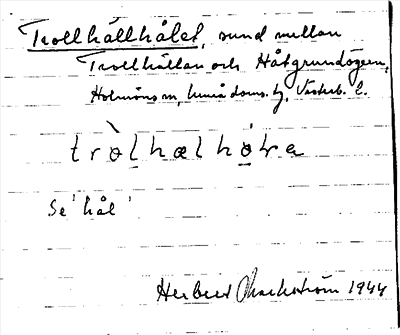 Trollhällhålet, sund mellan
Trollhällan och Håtgrundögern,
Holmöns sn, Umeå doms. tg, Västerb. l.
tròlhælhó̱ḷa
Se 'hål'
Herbert 1944